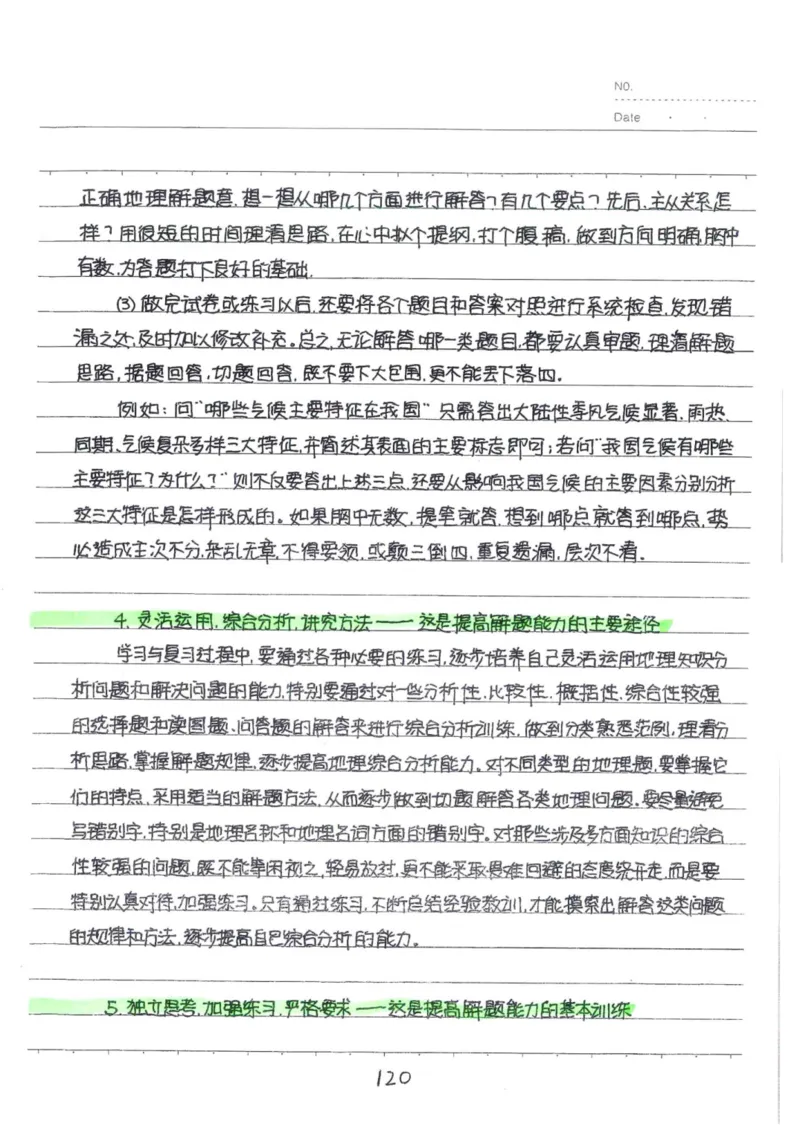 NO.
Date
正确地理解题意,想一想从哪几个方面进行解答?有几个要点?先后、主从关系怎
样?用很短的时间理清思路,在心中拟个提纲,打个腹稿,做到方向明确,胸中
有数,为答题打下良好的基础.
(3) 做完试卷或练习以后,还要将各个题目和答案对照进行系统检查,发现错
漏之处,及时加以修改补充。总之,无论解答哪一类题目,都要认真审题,理清解题
思路,据题回答,切题回答,既不要下大包围,更不能丢下落四。
例如:问“哪些气候主要特征在我国”只需答出大陆性季风气候显著,雨热、
同期、气候复杂多样三大特征,并简述其表面的主要标志即可;若问“我国气候有哪些
主要特征?为什么?”则不仅要答出上述三点,还要从影响我国气候的主要因素分别分析
这三大特征是怎样形成的。如果胸中无数,提笔就答,想到哪点就答到哪点,势
必造成主次不分,杂乱无章,不得要领,或颠三倒四,重复遗漏,层次不清.
4. 灵活运用,综合分析,讲究方法——这是提高解题能力的主要途径
学习与复习过程中,要通过各种必要的练习,逐步培养自己灵活运用地理知识分
析问题和解决问题的能力,特别要通过对一些分析性、比较性、概括性、综合性较强
的选择题和读图题、问答题的解答来进行综合分析训练,做到分类熟悉范例,理清分
析思路,掌握解题规律,逐步提高地理综合分析能力。对不同类型的地理题,要掌握它
们的特点,采用适当的解题方法,从而逐步做到切题解答各类地理问题。要尽量避免
写错别字,特别是地理名称和地理名词方面的错别字。对那些涉及多方面知识的综合
性较强的问题,既不能等闲视之,轻易放过,更不能采取畏难回避的态度绕开走,而是要
特别认真对待,加强练习。只有通过练习,不断总结经验教训,才能摸索出解答这类问题
的规律和方法,逐步提高自己综合分析的能力。
5. 独立思考,加强练习,严格要求——这是提高解题能力的基本训练
120